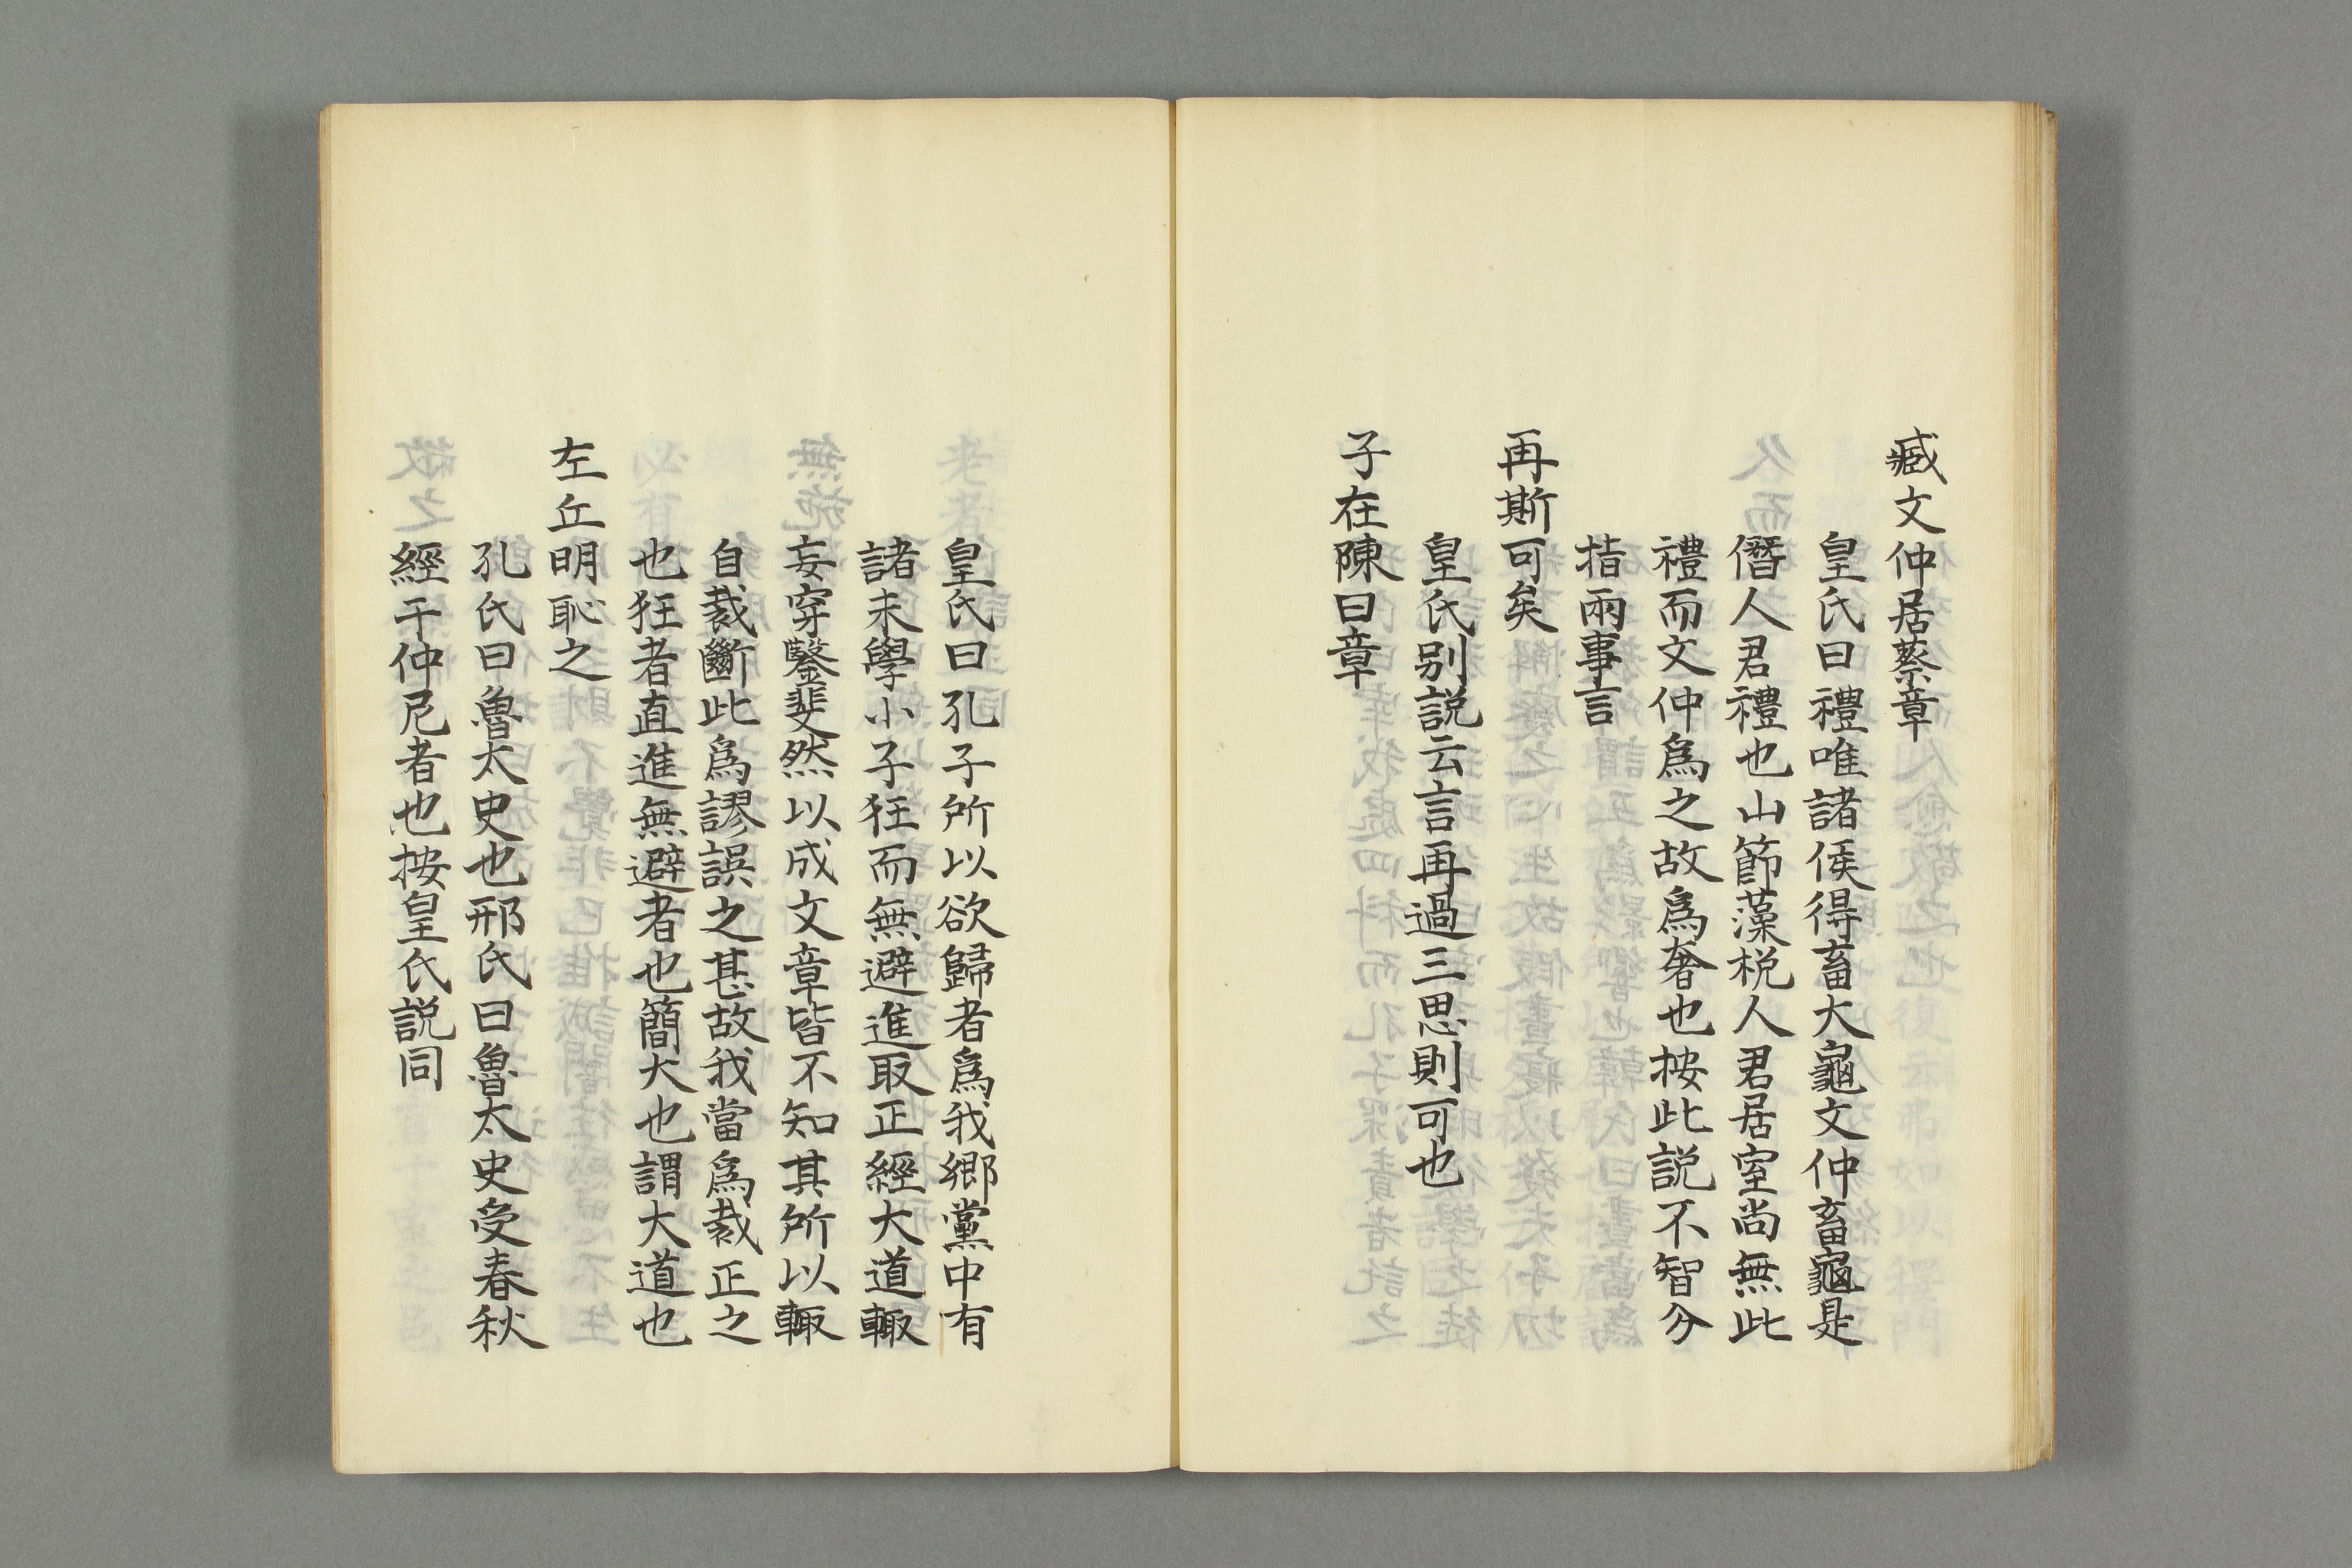 臧文仲居蔡章
皇氏曰禮唯諸侯得畜大龜文仲畜龜是
僭人君禮也山節藻梲人君居室尚無此
禮而文仲爲之故爲奢也按此説不智分
指兩事言
再斯可矣
皇氏别説云言再過三思則可也
子在陳曰章
皇氏曰孔子所以欲歸者爲我郷黨中有
諸末學小子狂而無避進取正經大道輙
妄穿鑿斐然以成文章皆不知其所以輙
自裁斷此爲謬誤之甚故我當爲裁正之
也狂者直進無避者也簡大也謂大道也
左丘明恥之
孔氏曰魯太史也邢氏曰魯太史受春秋
經于仲尼者也按皇氏説同